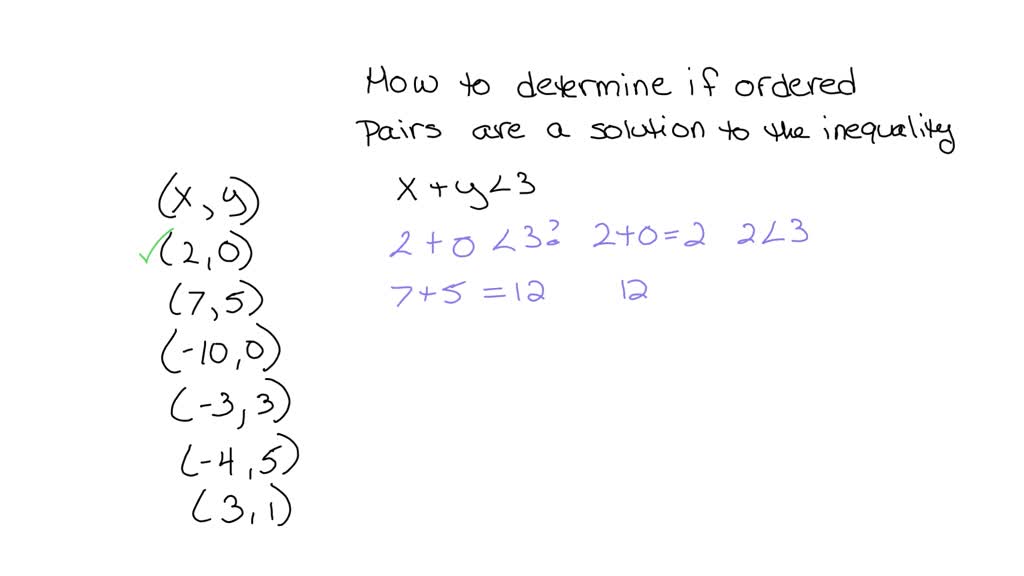 How to determine if ordered
pairs are a solution to the inequality
(x, y)
x + y < 3
✓(2, 0)
2 + 0 < 3? 2+0=2 2<3
(7, 5)
7+5 = 12 12
(-10, 0)
(-3, 3)
(-4, 5)
(3, 1)